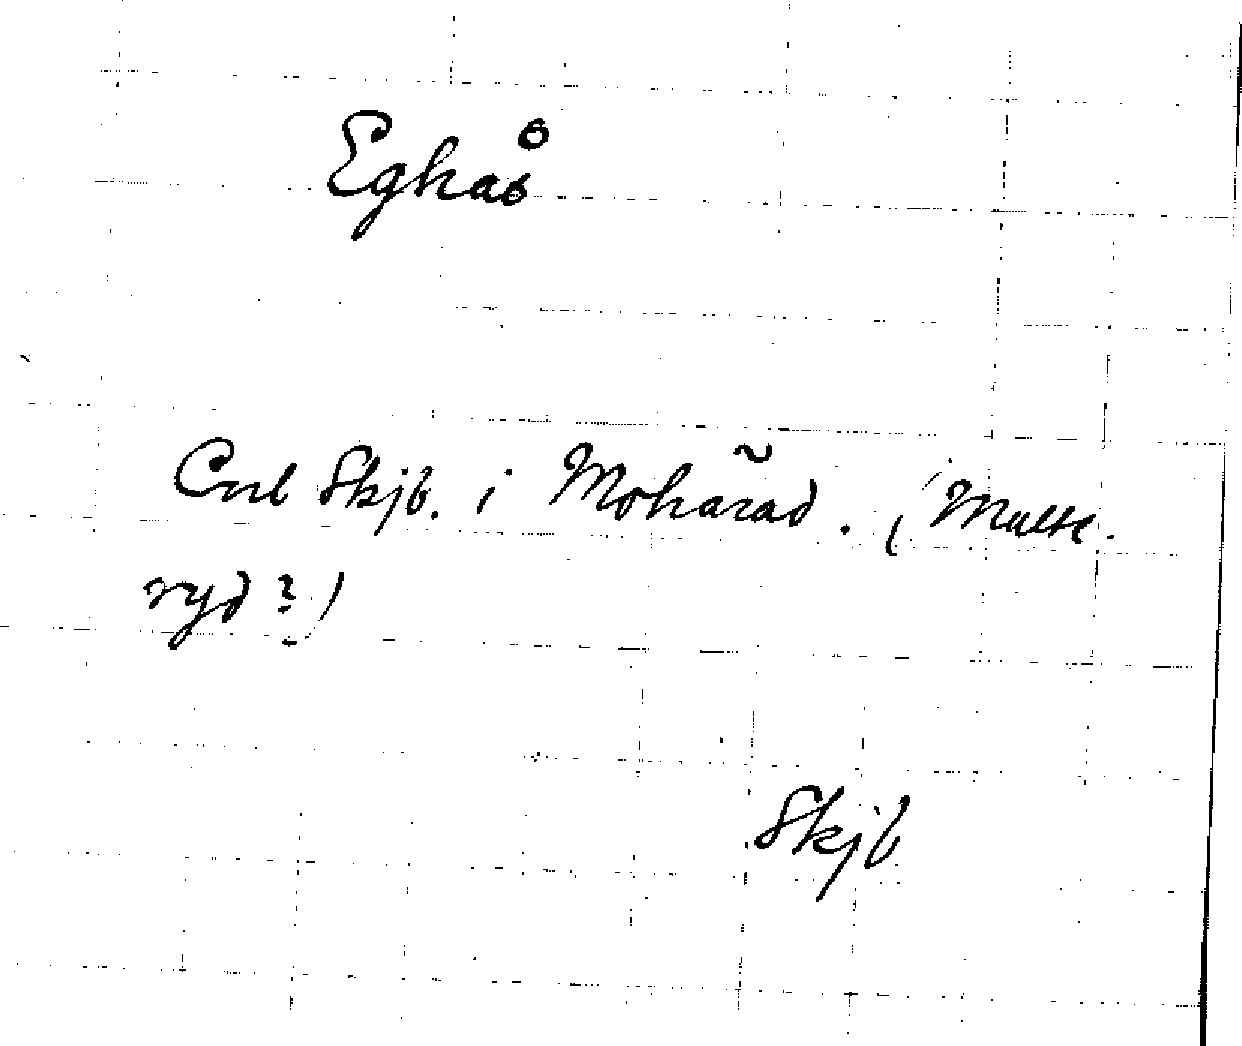 Eghas
Carl Skjb. i Moharad. (Malte-
ryd?)
Skjb